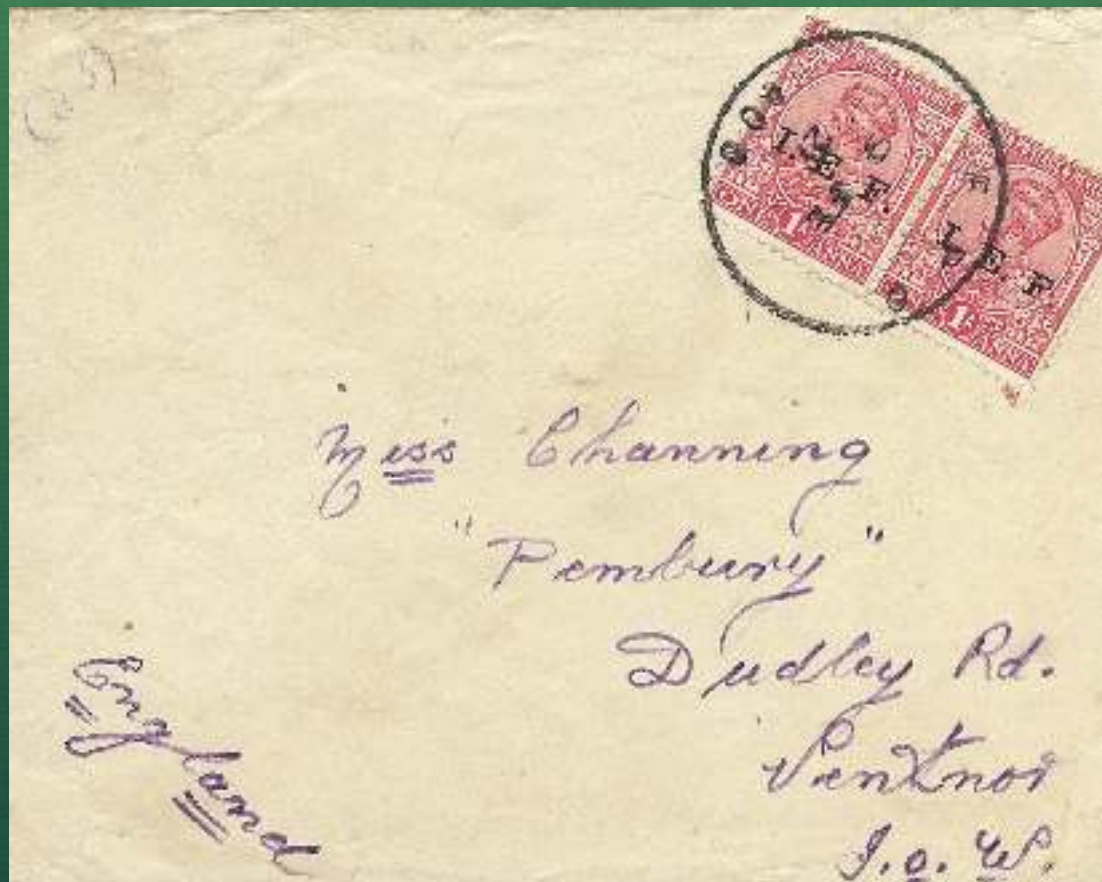 I.E.F.
I.E.F.
1
1
Miss Channing
"Pembury"
Dudley Rd.
Ventnor
I.o.W.
England